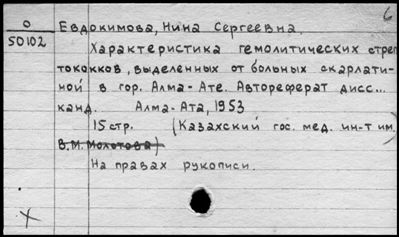 6
О Евдокимова, Нина Сергеевна.
50102 Характеристика гемолитических стреп
тококков, выделенных от больных скарлати-
ной в гор. Алма-Ате. Автореферат дисс...
канд. Алма-Ата, 1953
15 стр. (Казахский гос. мед. ин-т им.
В.М. Молотова)
На правах рукописи.
X